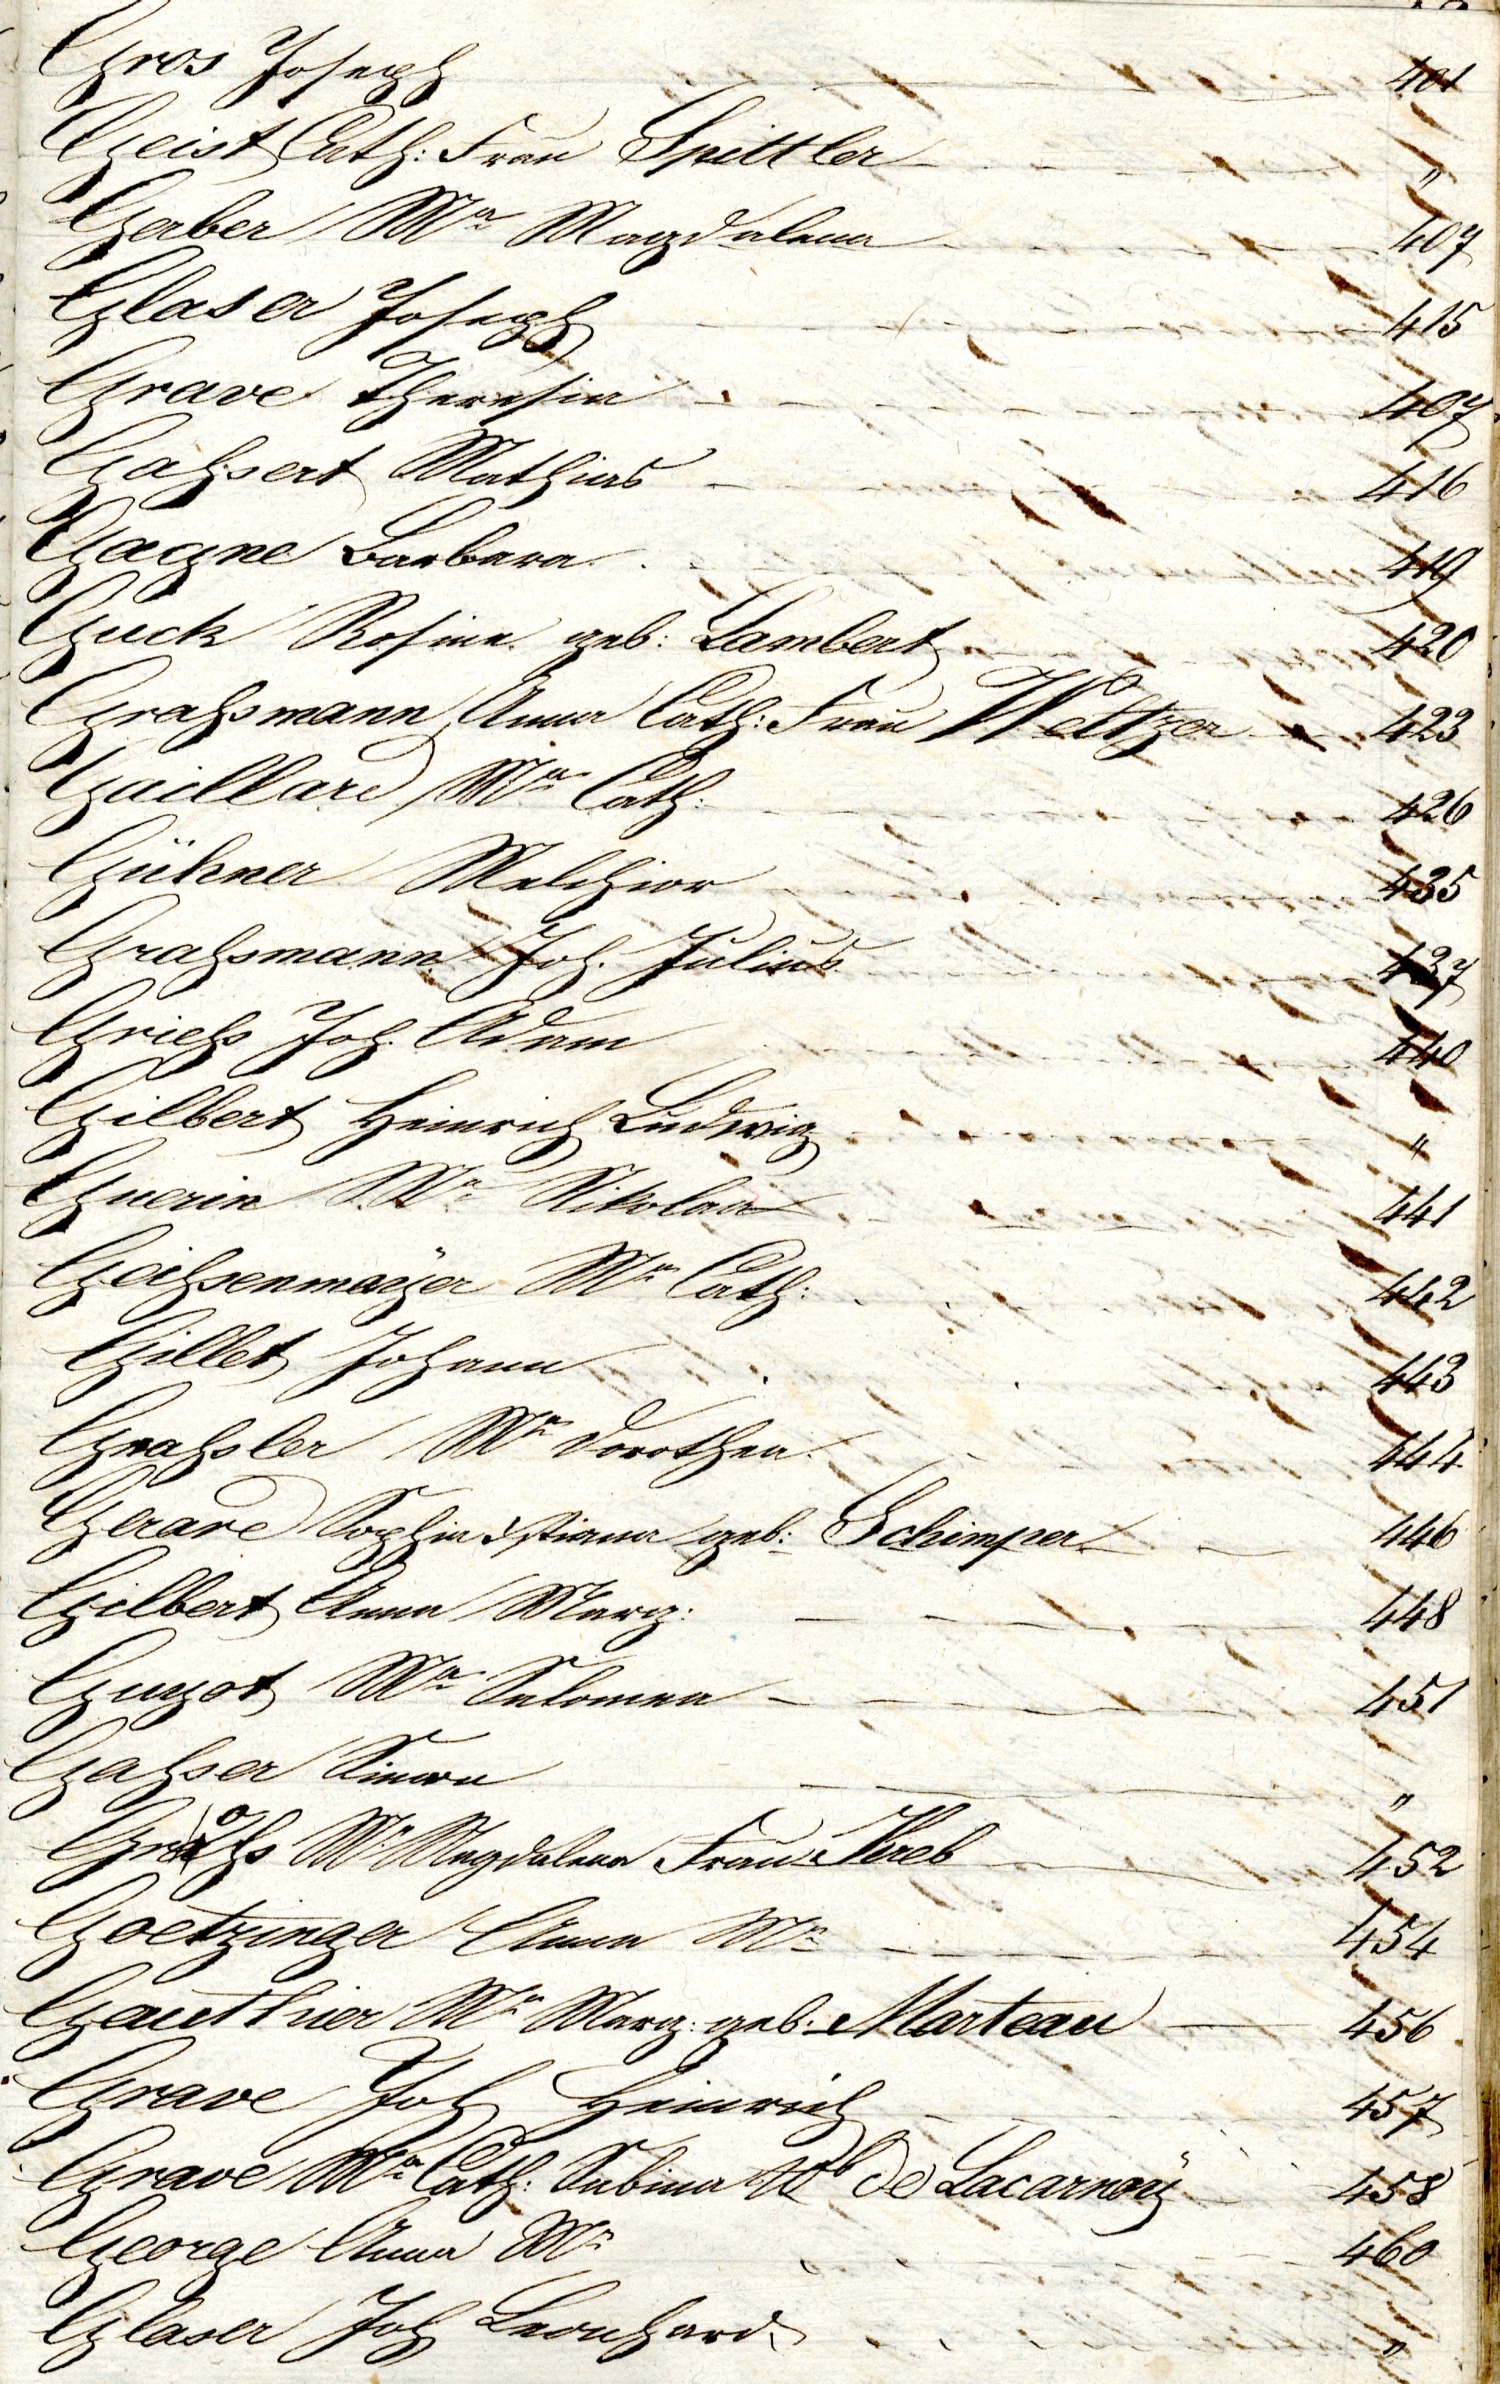 Gros Joseph 401
Geist Cath: Frau Spittler "
Gerber Ma Magdalena 407
Glaser Joseph 415
Grave Theresia 407
Gahsert Mathias 416
Gagne Barbara 419
Guck Rosine geb: Lambert 420
Grahsmann Anna Cath: Frau Weltzer 423
Gaillard Ma Cath: 426
Gühner Melchior 435
Grahsmann Joh. Julius 437
Griehs Joh. Adam 440
Gilbert Heinrich Ludwig "
Guerin Ma Nikolaa 441
Geihsenmaÿer Ma Cath: 442
Gillet Johann 443
Grahsler Ma Dorothea 444
Gerard Sophia Xstiana geb: Schimper 446
Gilbert Anna Marg: 448
Guyot Ma Salomea 451
Gahser Simon "
Grohs Ma Magdalena Frau Kreb 452
Goetzinger Anna Ma 454
Gauthier Ma Marg: geb: Marteau 456
Grave Joh Heinrich 457
Grave Ma Cath: Sabina Wb De Lacarnoÿ 458
George Anna Ma 460
Glaser Joh Leonhard "